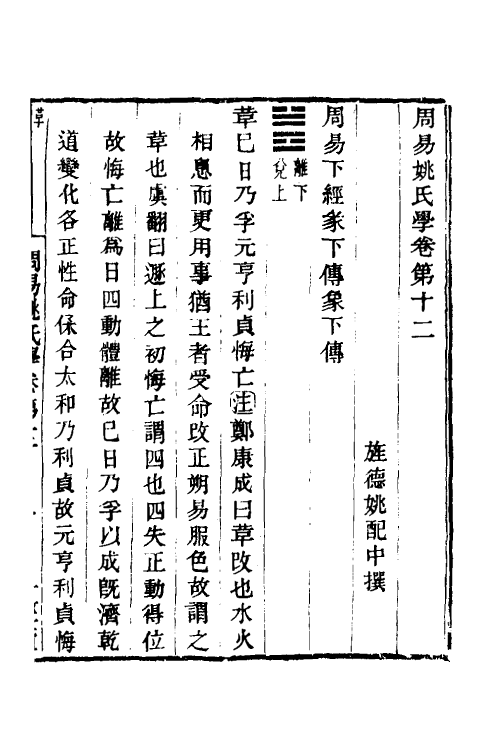 周易姚氏學卷第十二
旌德姚配中撰
周易下經彖下傳象下傳
離下
兌上
革巳日乃孚元亨利貞悔亡注鄭康成曰革改也水火
相息而更用事猶王者受命改正朔易服色故謂之
革也虞翻曰遯上之初悔亡謂四也四失正動得位
故悔亡離爲日四動體離故巳日乃孚以成旣濟乾
道變化各正性命保合太和乃利貞故元亨利貞悔
革
周易姚氏學卷第十二